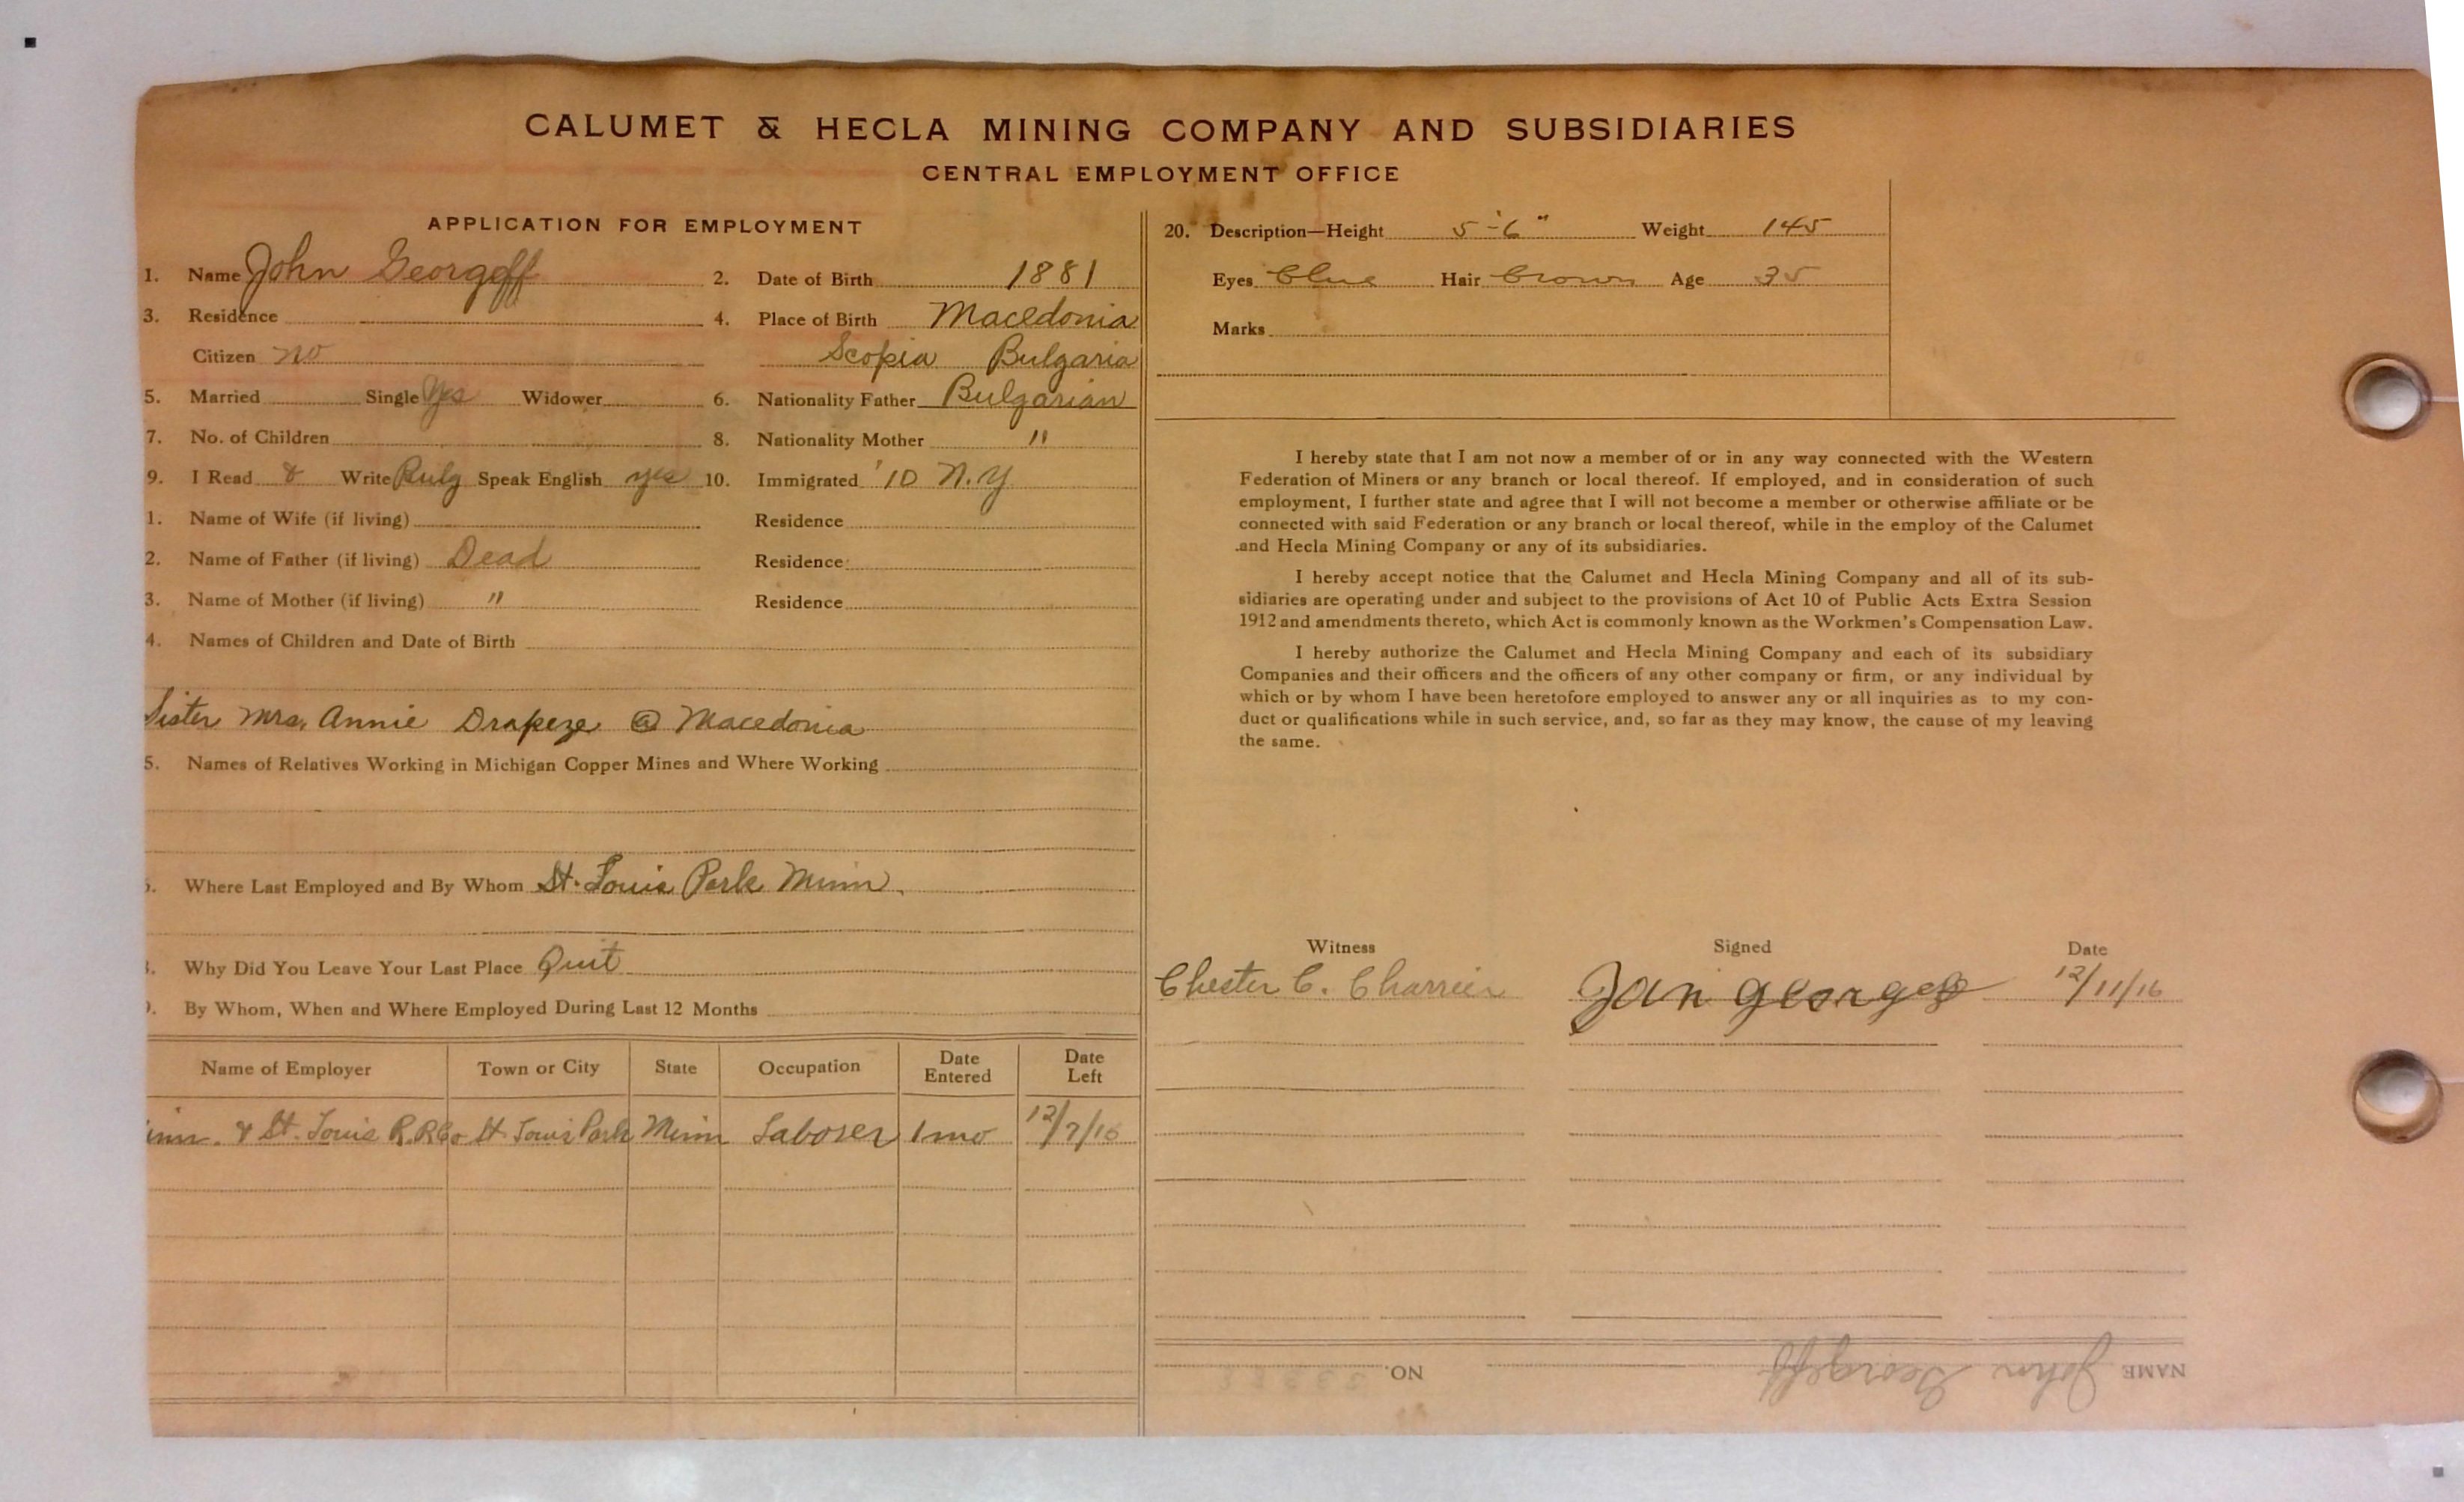 CALUMET & HECLA MINING COMPANY AND SUBSIDIARIES
CENTRAL EMPLOYMENT OFFICE
APPLICATION FOR EMPLOYMENT
1. Name John Georgeff 2. Date of Birth 1881
3. Residence 4. Place of Birth Macedonia
Citizen no Scopia Bulgaria
5. Married Single Yes Widower 6. Nationality Father Bulgarian
7. No. of Children 8. Nationality Mother "
9. I Read & Write Bulg Speak English yes 10. Immigrated '10 N.Y
1. Name of Wife (if living) Residence
2. Name of Father (if living) Dead Residence
3. Name of Mother (if living) " Residence
4. Names of Children and Date of Birth
Sister Mrs. Annie Drapeze @ Macedonia
5. Names of Relatives Working in Michigan Copper Mines and Where Working
Where Last Employed and By Whom St. Louis Park Minn.
Why Did You Leave Your Last Place Quit
By Whom, When and Where Employed During Last 12 Months
Name of Employer Town or City State Occupation Date Entered Date Left
inn. & St. Louis R.R Co St Louis Park Minn Laborer 1 mo 12/7/16
20. Description—Height 5'-6" Weight 145
Eyes Blue Hair Brown Age 35
Marks
I hereby state that I am not now a member of or in any way connected with the Western
Federation of Miners or any branch or local thereof. If employed, and in consideration of such
employment, I further state and agree that I will not become a member or otherwise affiliate or be
connected with said Federation or any branch or local thereof, while in the employ of the Calumet
and Hecla Mining Company or any of its subsidiaries.
I hereby accept notice that the Calumet and Hecla Mining Company and all of its sub-
sidiaries are operating under and subject to the provisions of Act 10 of Public Acts Extra Session
1912 and amendments thereto, which Act is commonly known as the Workmen's Compensation Law.
I hereby authorize the Calumet and Hecla Mining Company and each of its subsidiary
Companies and their officers and the officers of any other company or firm, or any individual by
which or by whom I have been heretofore employed to answer any or all inquiries as to my con-
duct or qualifications while in such service, and, so far as they may know, the cause of my leaving
the same.
Witness Signed Date
Chester C. Charrier Jan 12/11/16
NAME John Georgeff NO.